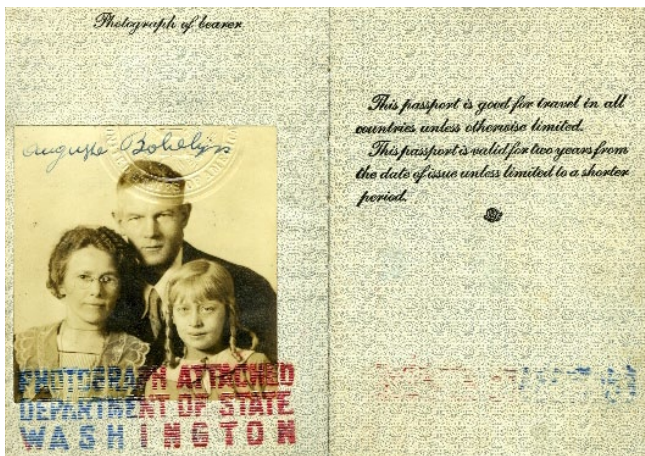 Photograph of bearer
Auguste
PHOTOGRAPH ATTACHED
DEPARTMENT OF STATE
WASHINGTON
This passport is good for travel in all
countries unless otherwise limited.
This passport is valid for two years from
the date of issue unless limited to a shorter
period.